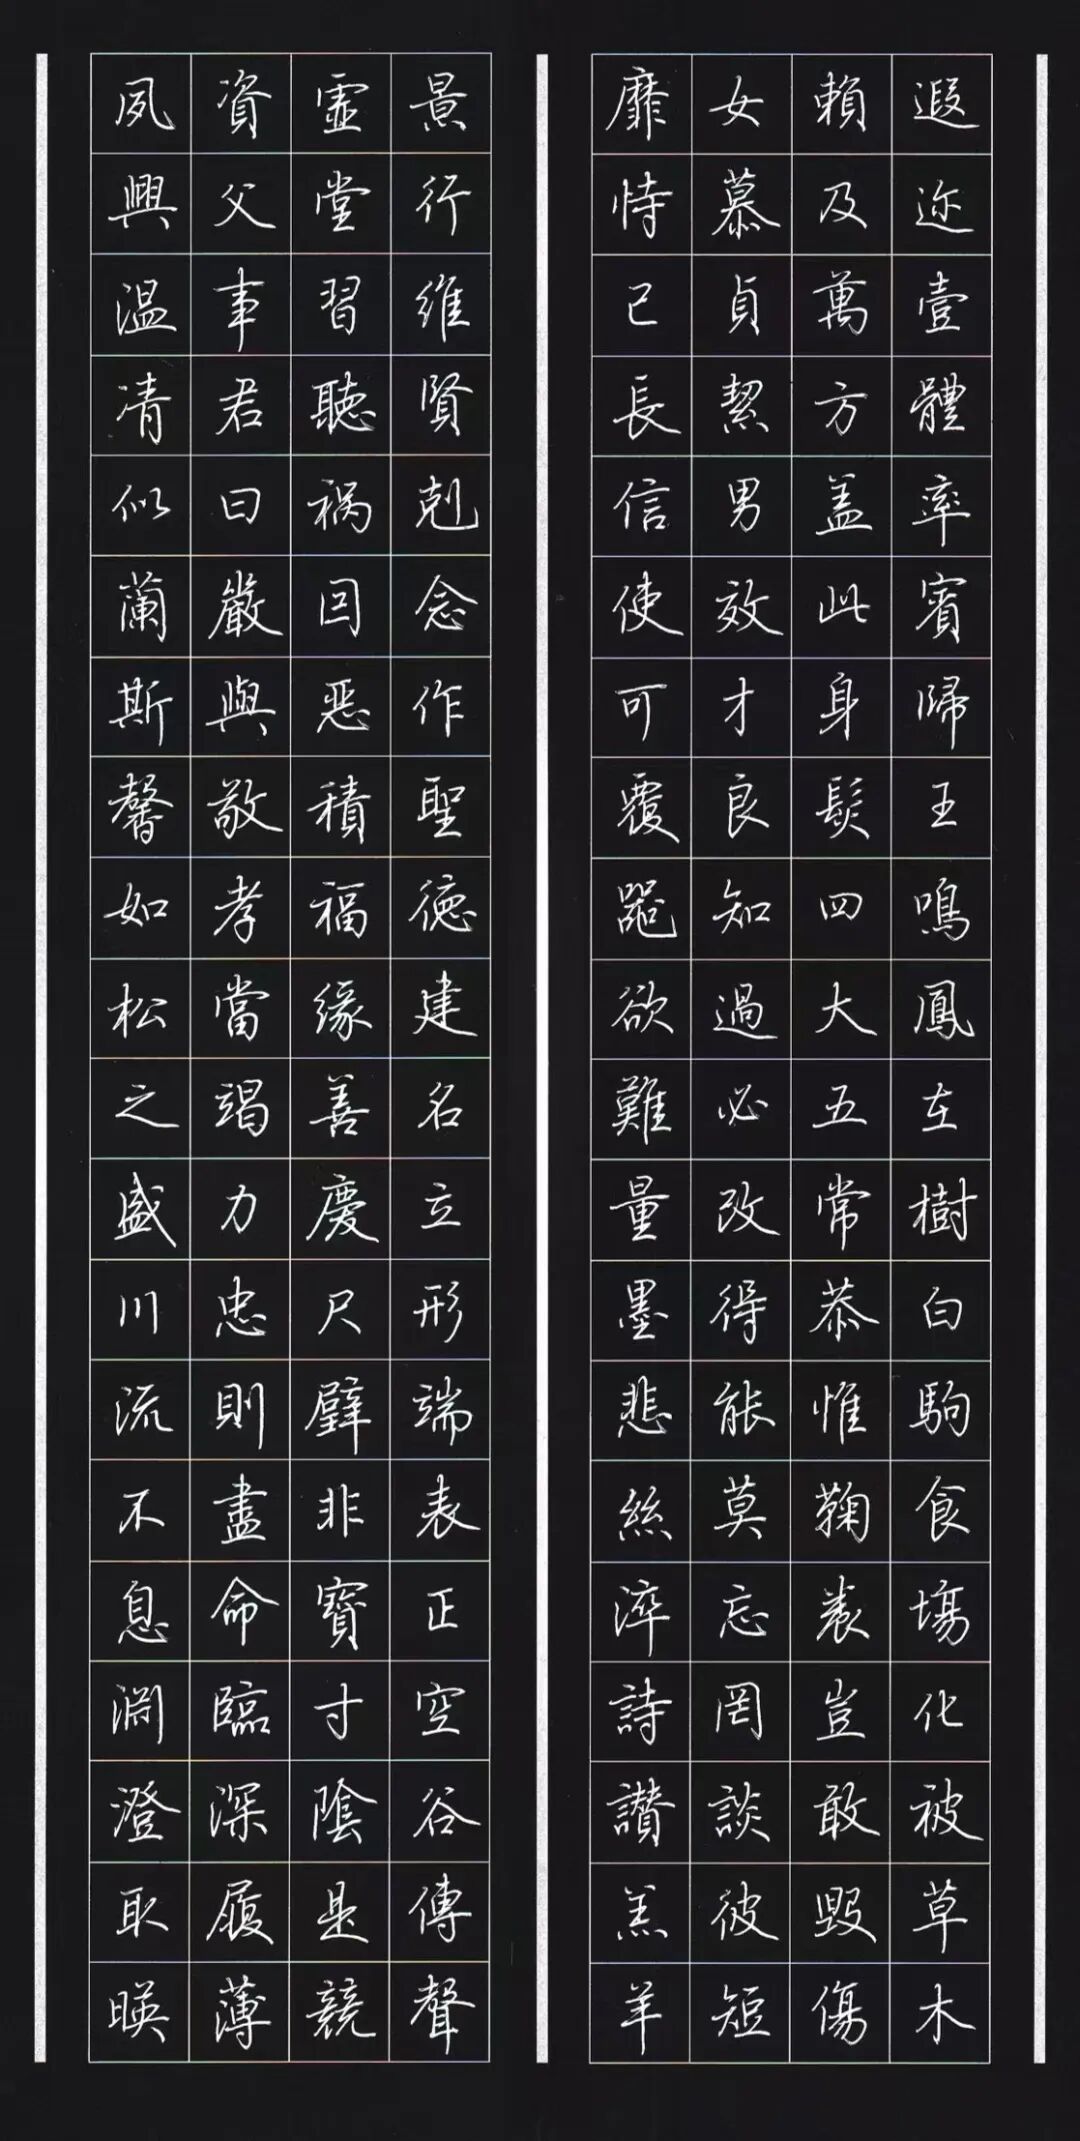 遐迩壹體率賓歸王鳴鳳在樹白駒食場化被草木
賴及萬方盖此身髮四大五常恭惟鞠養豈敢毀傷
女慕貞絜男效才良知過必改得能莫忘罔談彼短
靡恃己長信使可覆器欲難量墨悲絲淬詩讃羔羊
景行維賢剋念作聖德建名立形端表正空谷傳聲
虛堂習聽禍因惡積福緣善慶尺璧非寶寸陰是競
資父事君曰嚴與敬孝當竭力忠則盡命臨深履薄
夙興温凊似蘭斯馨如松之盛川流不息淵澄取暎